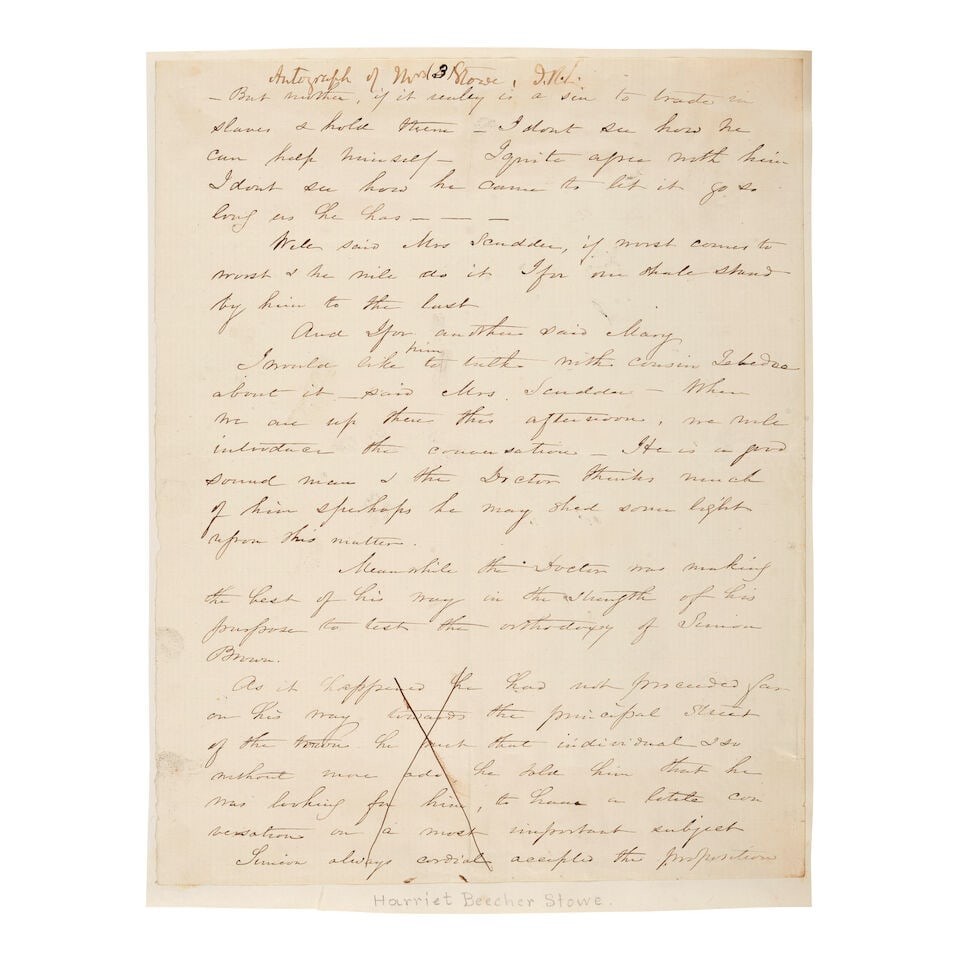 Autograph of Mrs. Stowe, D.R.L.
3
– But mother, if it realey is a sin to trade in
slaves & hold them – I dont see how he
can help himself – I quite agree with him
I dont see how he came to let it go so
long as he has – – –
Well said Mrs Scudder, if worst comes to
worst & he will do it I for one shall stand
by him to the last
And I for another said Mary
him
I would like to talk with cousin Zebedee
about it – said Mrs. Scudder – When
we are up there this afternoon, we will
introduce the conversation – He is a good
sound man & the Doctor thinks much
of him & perhaps he may shed some light
upon this matter.
Meanwhile the Doctor was making
the best of his way in the strength of his
purpose to test the orthodoxy of Simeon
Brown.
As it happened he had not proceeded far
on his way towards the principal Street
of the town he met that individual & so
without more ado he told him that he
was looking for him, to have a little con
versation on a most important subject
Simeon always cordial accepted the proposition
Harriet Beecher Stowe.